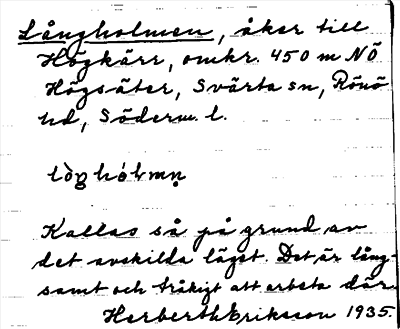 Långholmen, åker till
Högkärr, omkr. 450 m NÖ
Högsäter, Svärta sn, Rönö
hd, Söderm. l.
lòŋhólmn̥
Kallas så på grund av
det avskilda läget. Det är lång-
samt och tråkigt att arbeta där.
Herberth Eriksson 1935.